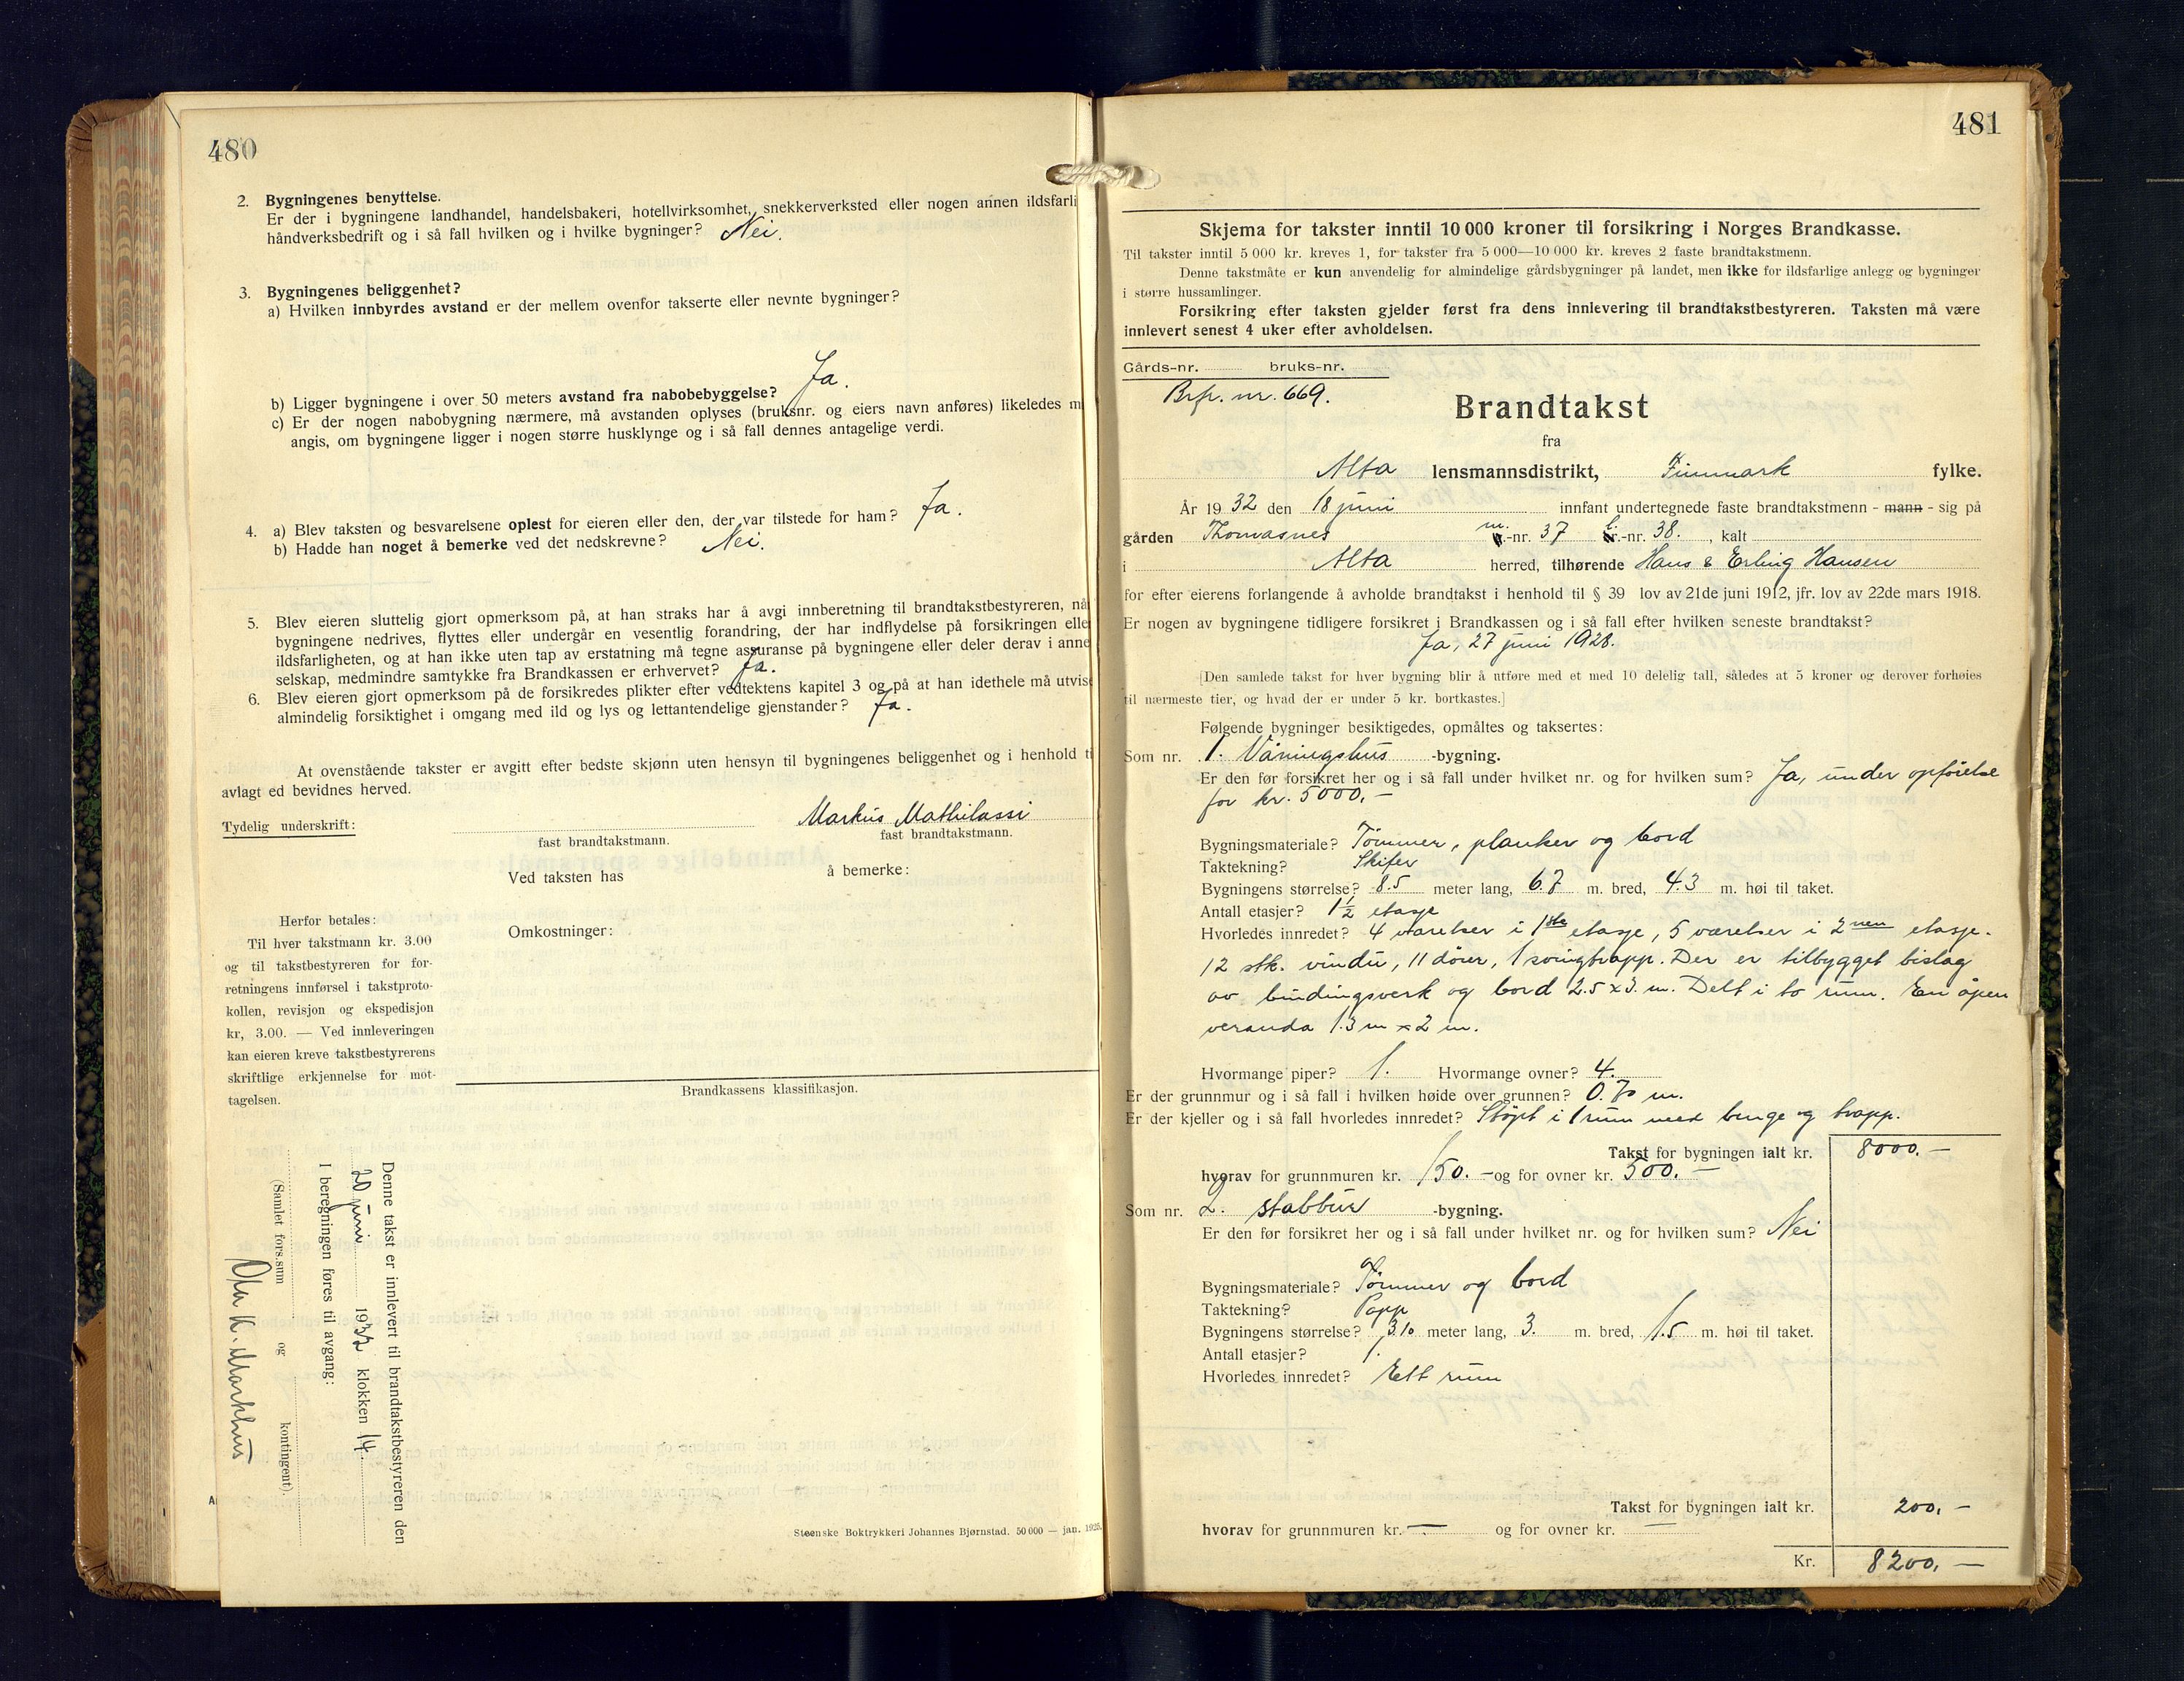 480
2. Bygningenes benyttelse.
Er der i bygningene landhandel, handelsbakeri, hotellvirksomhet, snekkerverksted eller nogen annen ildsfarli
håndverksbedrift og i så fall hvilken og i hvilke bygninger? Nei.
3. Bygningenes beliggenhet?
a) Hvilken innbyrdes avstand er der mellem ovenfor takserte eller nevnte bygninger?
b) Ligger bygningene i over 50 meters avstand fra nabobebyggelse? Ja.
c) Er der nogen nabobygning nærmere, må avstanden oplyses (bruksnr. og eiers navn anføres) likeledes m
angis, om bygningene ligger i nogen større husklynge og i så fall dennes antagelige verdi.
4. a) Blev taksten og besvarelsene oplest for eieren eller den, der var tilstede for ham? Ja.
b) Hadde han noget å bemerke ved det nedskrevne? Nei.
5. Blev eieren sluttelig gjort opmerksom på, at han straks har å avgi innberetning til brandtakstbestyreren, nå
bygningene nedrives, flyttes eller undergår en vesentlig forandring, der har indflydelse på forsikringen elle
ildsfarligheten, og at han ikke uten tap av erstatning må tegne assuranse på bygningene eller deler derav i anne
selskap, medmindre samtykke fra Brandkassen er erhvervet? Ja.
6. Blev eieren gjort opmerksom på de forsikredes plikter efter vedtektens kapitel 3 og på at han idethele må utvise
almindelig forsiktighet i omgang med ild og lys og lettantendelige gjenstander? Ja.
At ovenstående takster er avgitt efter bedste skjønn uten hensyn til bygningenes beliggenhet og i henhold ti
avlagt ed bevidnes herved.
Tydelig underskrift: Markus Mathilassi
fast brandtakstmann. fast brandtakstmann.
Ved taksten has å bemerke:
Omkostninger:
Herfor betales:
Til hver takstmann kr. 3.00
og til takstbestyreren for for-
retningens innførsel i takstproto-
kollen, revisjon og ekspedisjon
kr, 3.00. — Ved innleveringen
kan eieren kreve takstbestyrerens
skriftlige erkjennelse for mot-
tagelsen.
Brandkassens klassifikasjon.
Denne takst er innlevert til brandtakstbestyreren den
20 juni 1932 klokken 14
I beregningen føres til avgang:
(Samlet fors.sum og kontingent).
Ola K. Markhus
Steenske Boktrykkeri Johannes Bjørnstad. 50 000 — jan. 1925.
481
Skjema for takster inntil 10 000 kroner til forsikring i Norges Brandkasse.
Til takster inntil 5 000 kr. kreves 1, for takster fra 5 000—10 000 kr. kreves 2 faste brandtakstmenn.
Denne takstmåte er kun anvendelig for almindelige gårdsbygninger på landet, men ikke for ildsfarlige anlegg og bygninger
i større hussamlinger.
Forsikring efter taksten gjelder først fra dens innlevering til brandtakstbestyreren. Taksten må være
innlevert senest 4 uker efter avholdelsen.
Gårds-nr. bruks-nr.
Brp. nr. 669.
Brandtakst
fra
Alta lensmannsdistrikt, Finnmark fylke.
År 1932 den 18 juni innfant undertegnede faste brandtakstmenn - mann - sig på
gården Thomasnes m.-nr. 37 l.-nr. 38. , kalt
i Alta herred, tilhørende Hans & Erling Hansen
for efter eierens forlangende å avholde brandtakst i henhold til § 39 lov av 21de juni 1912, jfr. lov av 22de mars 1918.
Er nogen av bygningene tidligere forsikret i Brandkassen og i så fall efter hvilken seneste brandtakst?
Ja, 27 juni 1928.
[Den samlede takst for hver bygning blir å utføre med et med 10 delelig tall, således at 5 kroner og derover forhøies
til nærmeste tier, og hvad der er under 5 kr. bortkastes.]
Følgende bygninger besiktigedes, opmåltes og taksertes:
Som nr. 1. Våningshus -bygning.
Er den før forsikret her og i så fall under hvilket nr. og for hvilken sum? Ja, under opførelse
for kr. 5000,-
Bygningsmateriale? Tømmer, planker og bord
Taktekning? Skifer
Bygningens størrelse? 8.5 meter lang, 6.7 m. bred, 4.3 m. høi til taket.
Antall etasjer? 1½ etasje
Hvorledes innredet? 4 værelser i 1ste etasje, 5 værelser i 2nen etasje.
12 stk. vindu, 11 dører, 1 svingtrapp. Der er tilbygget bislag
av bindingsverk og bord 2.5 x 3. m. Delt i to rum. En åpen
veranda 1.3 m x 2 m.
Hvormange piper? 1. Hvormange ovner? 4.
Er der grunnmur og i så fall i hvilken høide over grunnen? 0.70 m.
Er der kjeller og i så fall hvorledes innredet? Støpt i 1 rum med binge og trapp.
Takst for bygningen ialt kr. 8000.-
hvorav for grunnmuren kr. 150.- og for ovner kr. 500.-
Som nr. 2. stabbur -bygning.
Er den før forsikret her og i så fall under hvilket nr. og for hvilken sum? Nei
Bygningsmateriale? Tømmer og bord
Taktekning? Papp
Bygningens størrelse? 3.10 meter lang, 3. m. bred, 1.5 m. høi til taket.
Antall etasjer? 1.
Hvorledes innredet? Ett rum
Takst for bygningen ialt kr. 200,-
hvorav for grunnmuren kr. — og for ovner kr. —
Kr. 8200,-